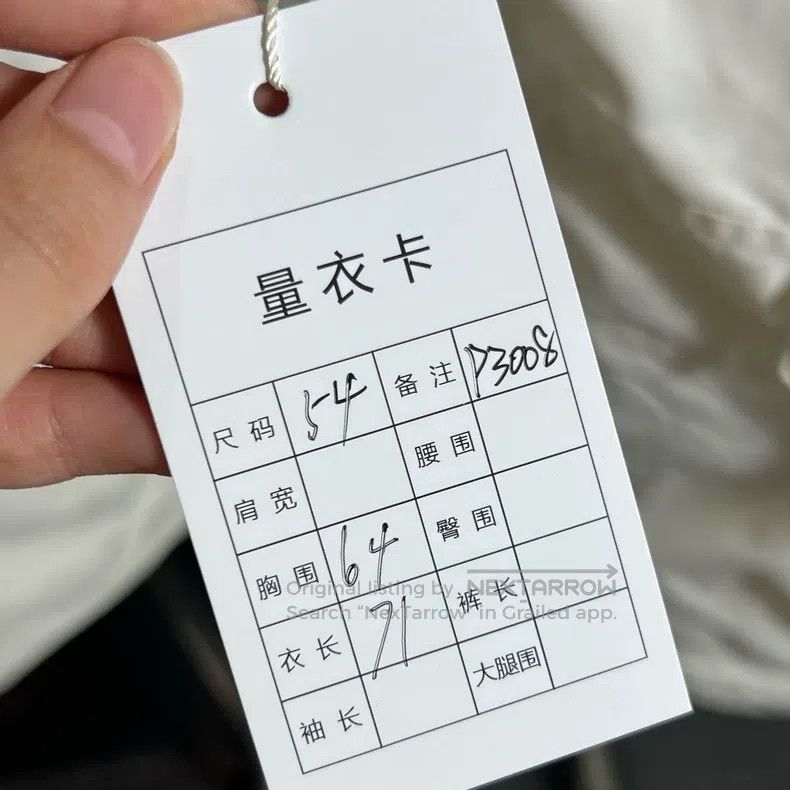 量衣卡
尺码 54 备注 P3008
肩宽 腰围
胸围 64 臀围
衣长 71 裤长
袖长 大腿围
Original listing by NEXTARROW
Search "NexTarrow" in Grailed app.